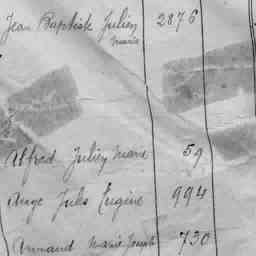 Jean Baptiste Julien 2876
Marie
Alfred Julien Marie 59
Ange Jules Eugène 994
Armand Marie Joseph 730